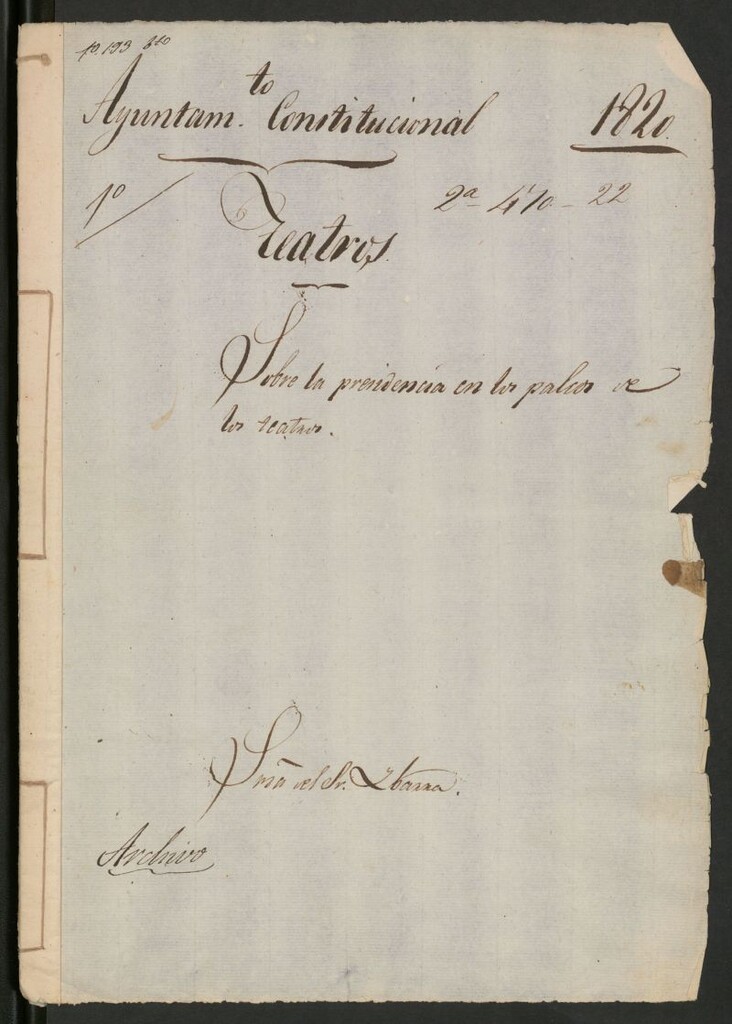 fo. 193 bto
Ayuntam.to Constitucional 1820
1º 2ª 470-22
Teatros
Sobre la presidencia en los palcos de
los teatros.
del Sr. Ybarra.
Archivo